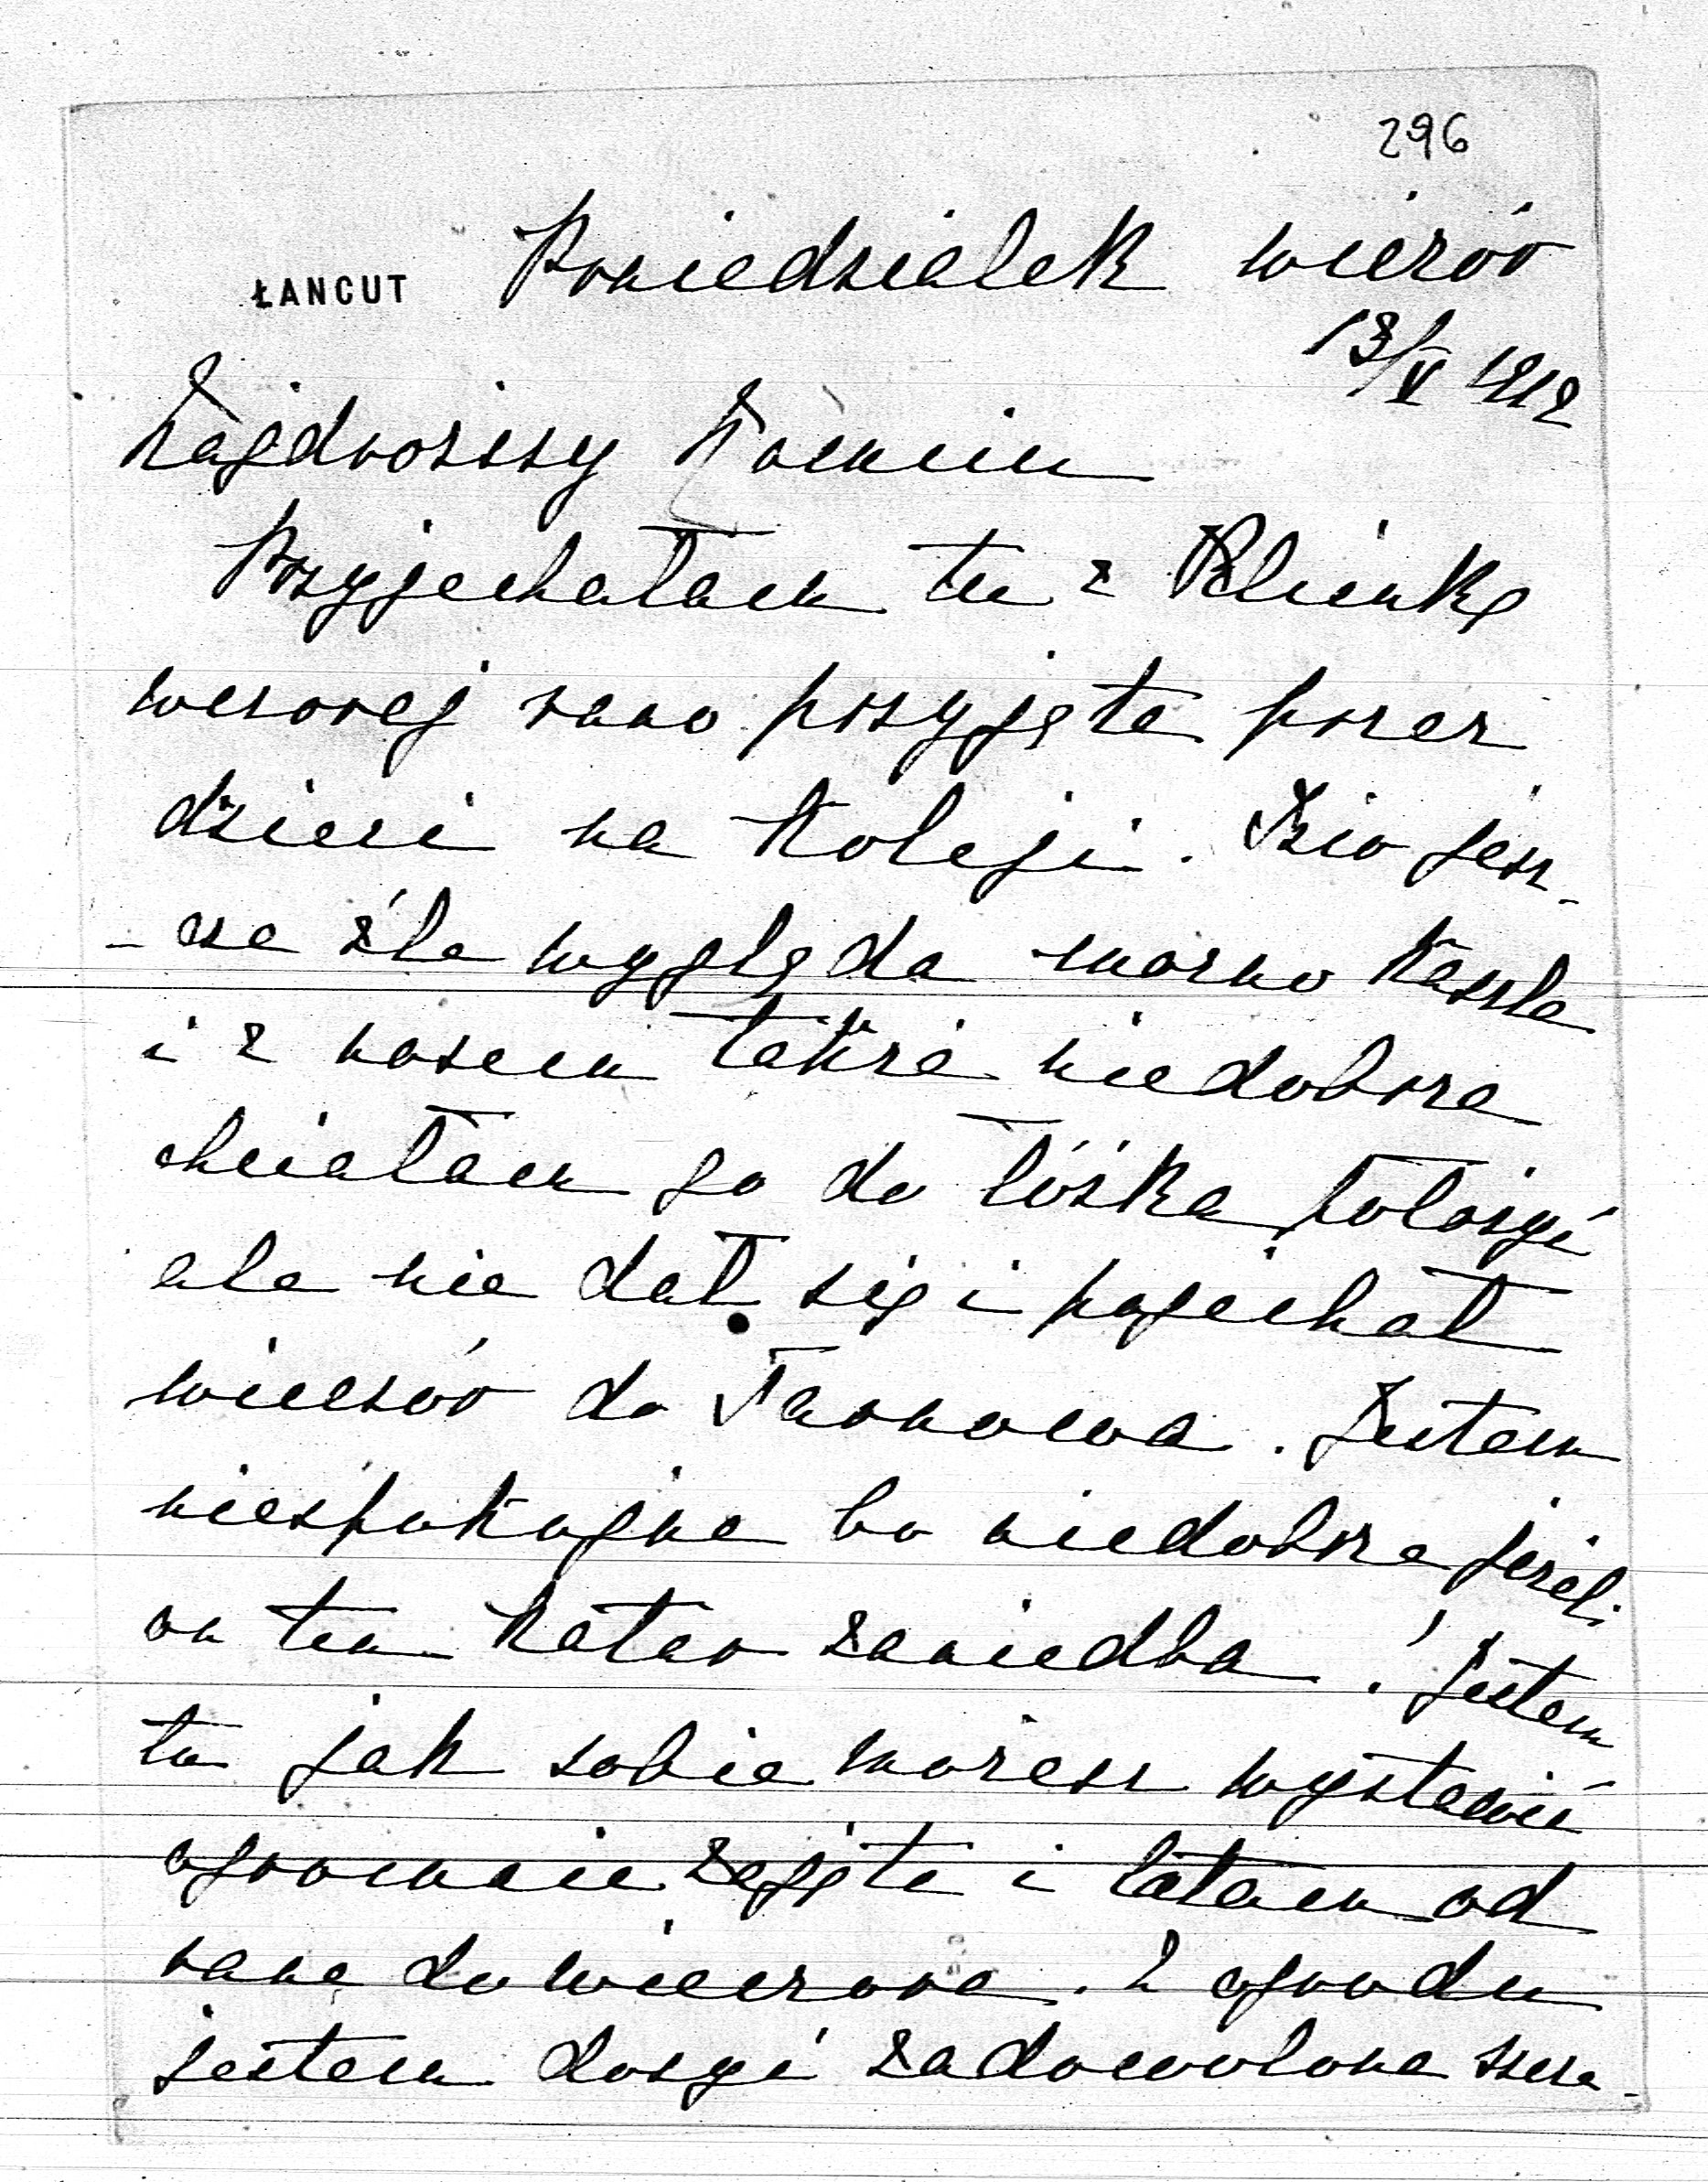 296
ŁANCUT Poniedziałek wieczór
13/V 1912
Najdroższy Romciu
Przyjechałam tu z
wczoraj rano przyjęta przez
dzieci na koleji. Józio jesz-
-cze źle wygląda mocno kaszle
i z nosem także niedobrze
chciałam go do łóżka położyć
ale nie dał się i pojechał
wieczór do Tarnowa. Jestem
niespokojna bo niedobrze jeżeli
on ten katar zaniedba! Jestem
tu jak sobie możesz wystawić
ogromnie zajęta i latam od
rana do wieczora. Z ogrodu
jestem dosyć zadowolona szcze-